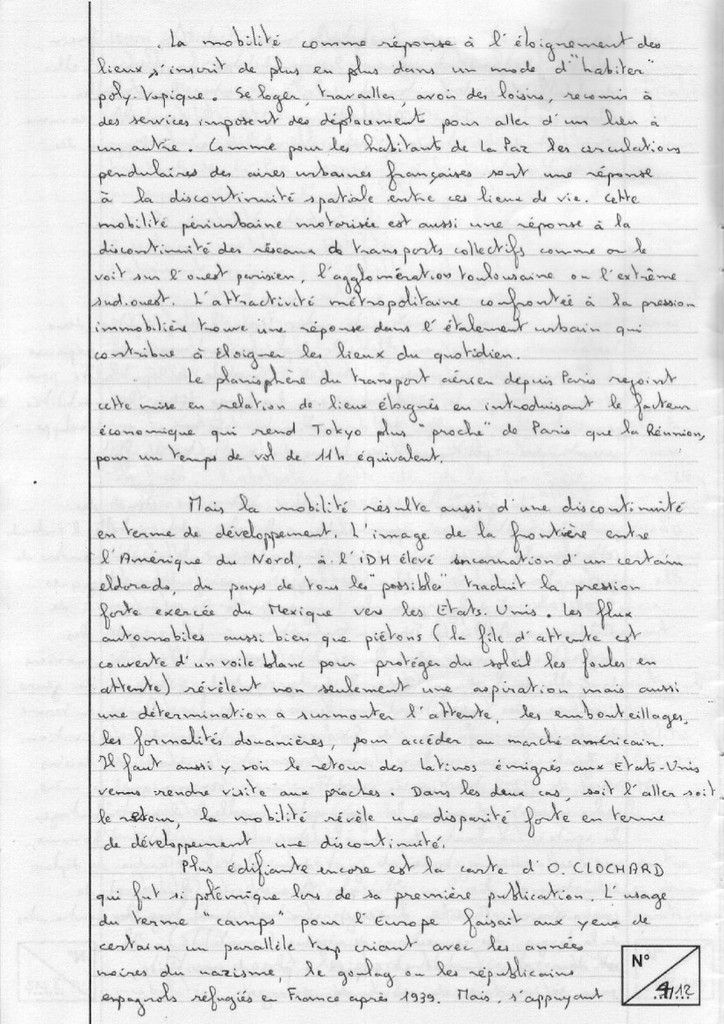 . La mobilité comme réponse à l'éloignement des
lieux s'inscrit de plus en plus dans un mode d'"habiter"
poly-topique. Se loger, travailler, avoir des loisirs, recourir à
des services imposent des déplacements pour aller d'un lieu à
un autre. Comme pour les habitants de La Paz les circulations
pendulaires des aires urbaines françaises sont une réponse
à la discontinuité spatiale entre ces lieux de vie. Cette
mobilité périurbaine motorisée est aussi une réponse à la
discontinuité des réseaux de transports collectifs comme on le
voit sur l'ouest parisien, l'agglomération toulousaine ou l'extrême
sud-ouest. L'attractivité métropolitaine confrontée à la pression
immobilière trouve une réponse dans l'étalement urbain qui
contribue à éloigner les lieux du quotidien.
Le planisphère du transport aérien depuis Paris rejoint
cette mise en relation de lieux éloignés en introduisant le facteur
économique qui rend Tokyo plus "proche" de Paris que la Réunion,
pour un temps de vol de 11h équivalent.
Mais la mobilité résulte aussi d'une discontinuité
en terme de développement. L'image de la frontière entre
l'Amérique du Nord, à l'iDH élevé incarnation d'un certain
eldorado, du pays de tous les "possibles" traduit la pression
forte exercée du Mexique vers les Etats-Unis. Les flux
automobiles aussi bien que piétons (la file d'attente est
couverte d'un voile blanc pour protéger du soleil les foules en
attente) révèlent non seulement une aspiration mais aussi
une détermination a surmonter l'attente, les embouteillages,
les formalités douanières, pour accéder au marché américain.
Il faut aussi y voir le retour des latinos émigrés aux Etats-Unis
venus rendre visite aux proches. Dans les deux cas, soit l'aller soit
le retour, la mobilité révèle une disparité forte en terme
de développement, une discontinuité.
Plus édifiante encore est la carte d'O. CLOCHARD
qui fut si polémique lors de sa première publication. L'usage
du terme "camps" pour l'Europe faisait aux yeux de
certains un parallèle trop criant avec les années
noires du nazisme, le goulag ou les républicains
espagnols réfugiés en France après 1939. Mais, s'appuyant
N°
4/12